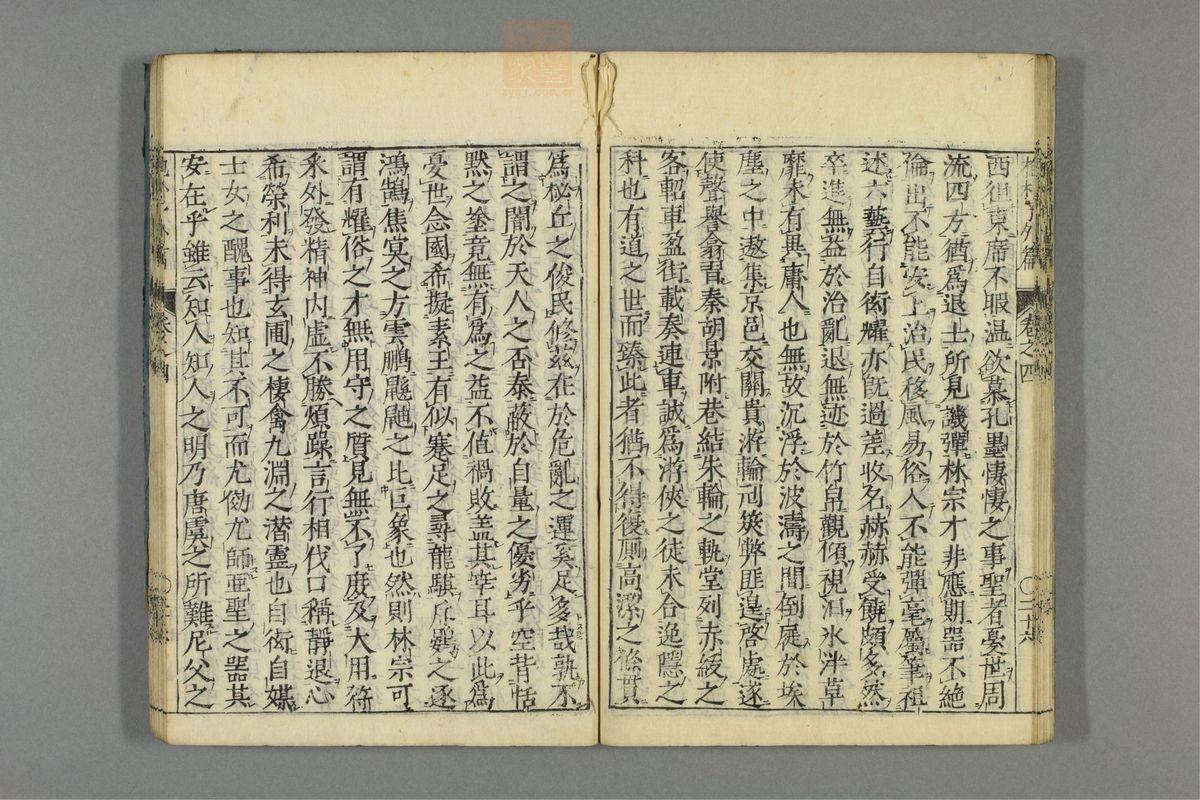 西徂東席不暇温欲慕孔墨悽悽之事聖者憂世周
流四方猶爲退士所見譏彈林宗才非應期器不絶
倫出不能安上治民移風易俗入不能彈毫屬筆祖
述六藝行自衒耀亦既過差收名赫赫受饒頗多然
卒進無益於治亂退無迹於竹帛觀傾視汩氷泮草
靡未有異庸人也無故沉浮於波濤之間倒屣於埃
塵之中遨集京邑交關貴游輪刓筴弊匪遑啓處遂
使聲譽翕習秦胡景附巷結朱輪之軌堂列赤紱之
客軺車盈街載奏連車誠爲游俠之徒未合逸隱之
科也有道之世而臻此者猶不得復厠高潔之條貫
爲秘丘之俊民脩兹在於危亂之運奚足多哉孰不
謂之闇於天人之否泰蔽於自量之優劣乎空背恬
默之塗竟無有爲之益不值禍敗盖其幸耳以此爲
憂世念國希擬素王有似蹇足之尋龍騏斥鷃之逐
鴻鵠焦冥之方雲鵬鼷鼬之比巨象也然則林宗可
謂有耀俗之才無用守之質見無不了庶及大用符
釆外發精神内虚不勝煩躁言行相伐口稱靜退心
希榮利未得玄圃之棲禽九淵之潛靈也自衒自媒
士女之醜事也知其不可而尤效尤師亜聖之器其
安在乎雖云知人知人之明乃唐虞之所難尼父之
卷之四